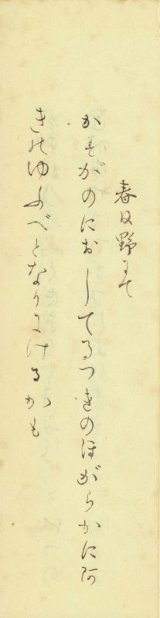 春日野にて
かすがのにおしてるつきのほがらかにあ
きのゆふべとなりにけるかも